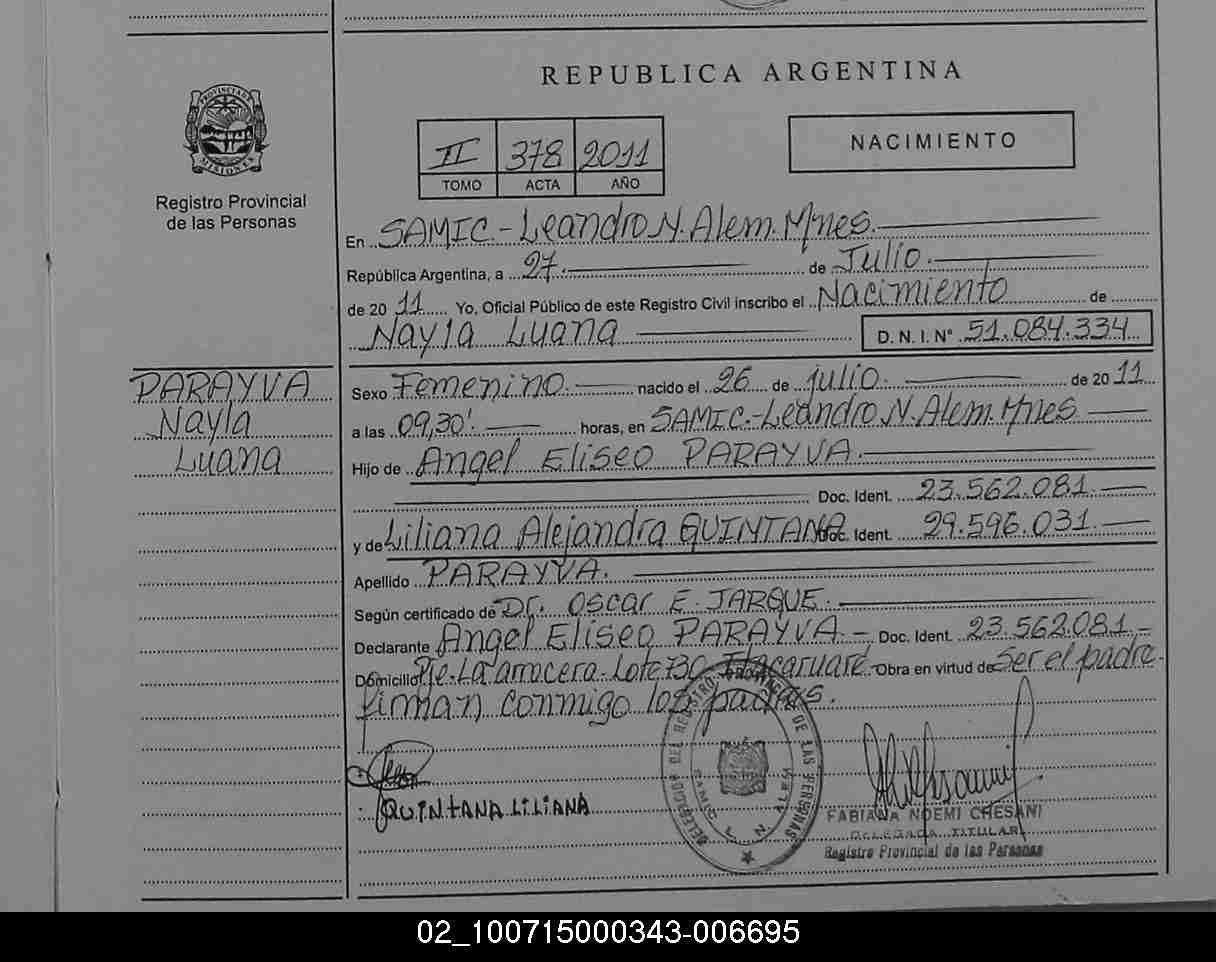 REPUBLICA ARGENTINA
PROVINCIA DE MISIONES
Registro Provincial
de las Personas
II 378 2011
TOMO ACTA AÑO
NACIMIENTO
En SAMIC.-Leandro N. Alem. Mnes.
República Argentina, a 27. de Julio.
de 20 11 Yo, Oficial Público de este Registro Civil inscribo el Nacimiento de
Nayla Luana D. N. I. N° 51.084.334
PARAYVA
Nayla
Luana
Sexo Femenino. nacido el 26 de julio. de 20 11
a las 09,30'. horas, en SAMIC.-Leandro N. Alem. Mnes
Hijo de Angel Eliseo PARAYVA.
Doc. Ident. 23.562.081.
y de Liliana Alejandra QUINTANA Doc. Ident. 29.596.031.
Apellido PARAYVA.
Según certificado de Dr. Oscar E. JARQUE.
Declarante Angel Eliseo PARAYVA.- Doc. Ident. 23.562.081.-
Domicilio Pje. La arrocera. Lote 730 Itacaruaré. Obra en virtud de Ser el padre.
firman conmigo los padres.
QUINTANA LILIANA
DELEGACION DEL REGISTRO PROVINCIAL DE LAS PERSONAS
SAMIC L. N. ALEM
FABIANA NOEMI CHESANI
DELEGADA TITULAR
Registro Provincial de las Personas
02_100715000343-006695